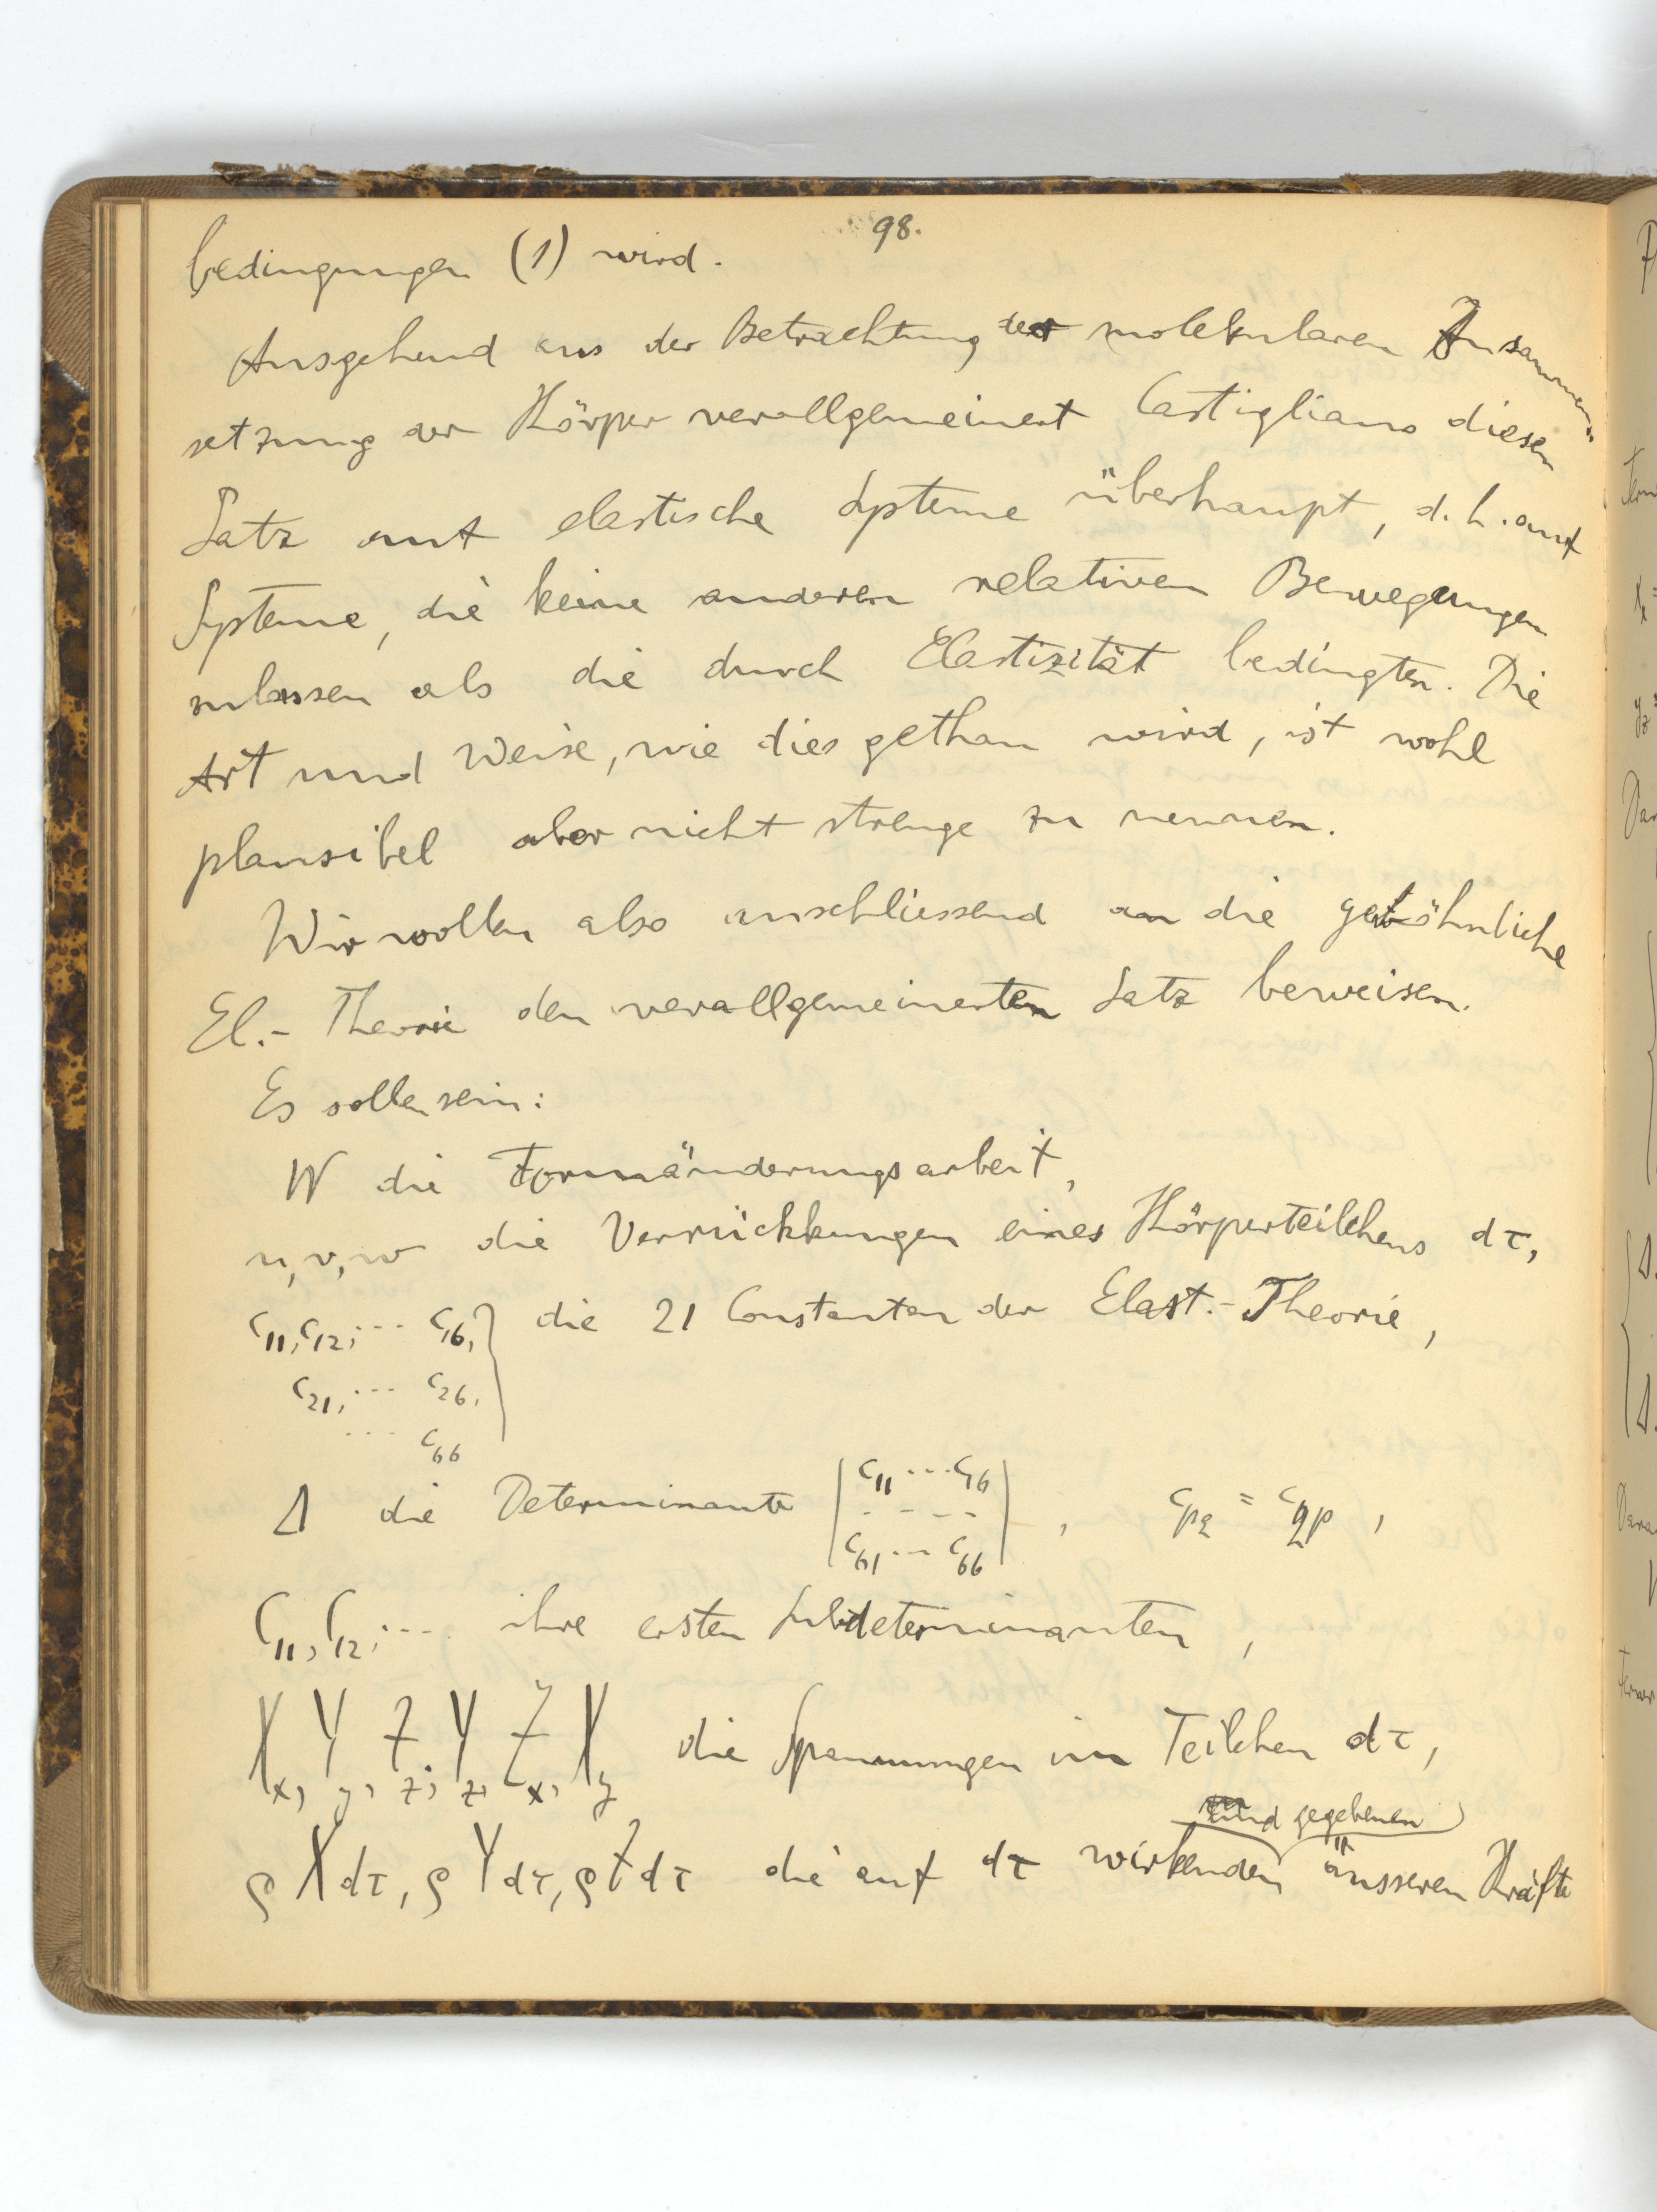 98.
bedingungen (1) wird.
Ausgehend aus der Betrachtung der molekularen Zusammen-
setzung der Körper verallgemeinert Castigliano diesen
Satz auf elastische Systeme überhaupt, d. h. auf
Systeme, die keine anderen relativen Bewegungen
zulassen als die durch Elastizität bedingten. Die
Art und Weise, wie dies gethan wird, ist wohl
plausibel aber nicht strenge zu nennen.
Wir wollen also anschliessend an die gewöhnliche
El.- Theorie den verallgemeinerten Satz beweisen.
Es sollen sein:
W die Formänderungsarbeit,
u, v, w die Verrückkungen eines Körperteilchens dτ,
c11, c12, ... c16, } die 21 Constanten der Elast.-Theorie,
c21, ... c26,
... c66
Δ die Determinante | c11 ... c16 | , cpq = cqp ,
- - - -
c61 ... c66
C11, C12, ... ihre ersten Subdeterminanten ,
Xx, Yy, Zz; Yz, Zx, Xy die Spannungen im Teilchen dτ,
und gegebenen
ρXdτ, ρYdτ, ρZdτ die auf dτ wirkenden äusseren Kräfte